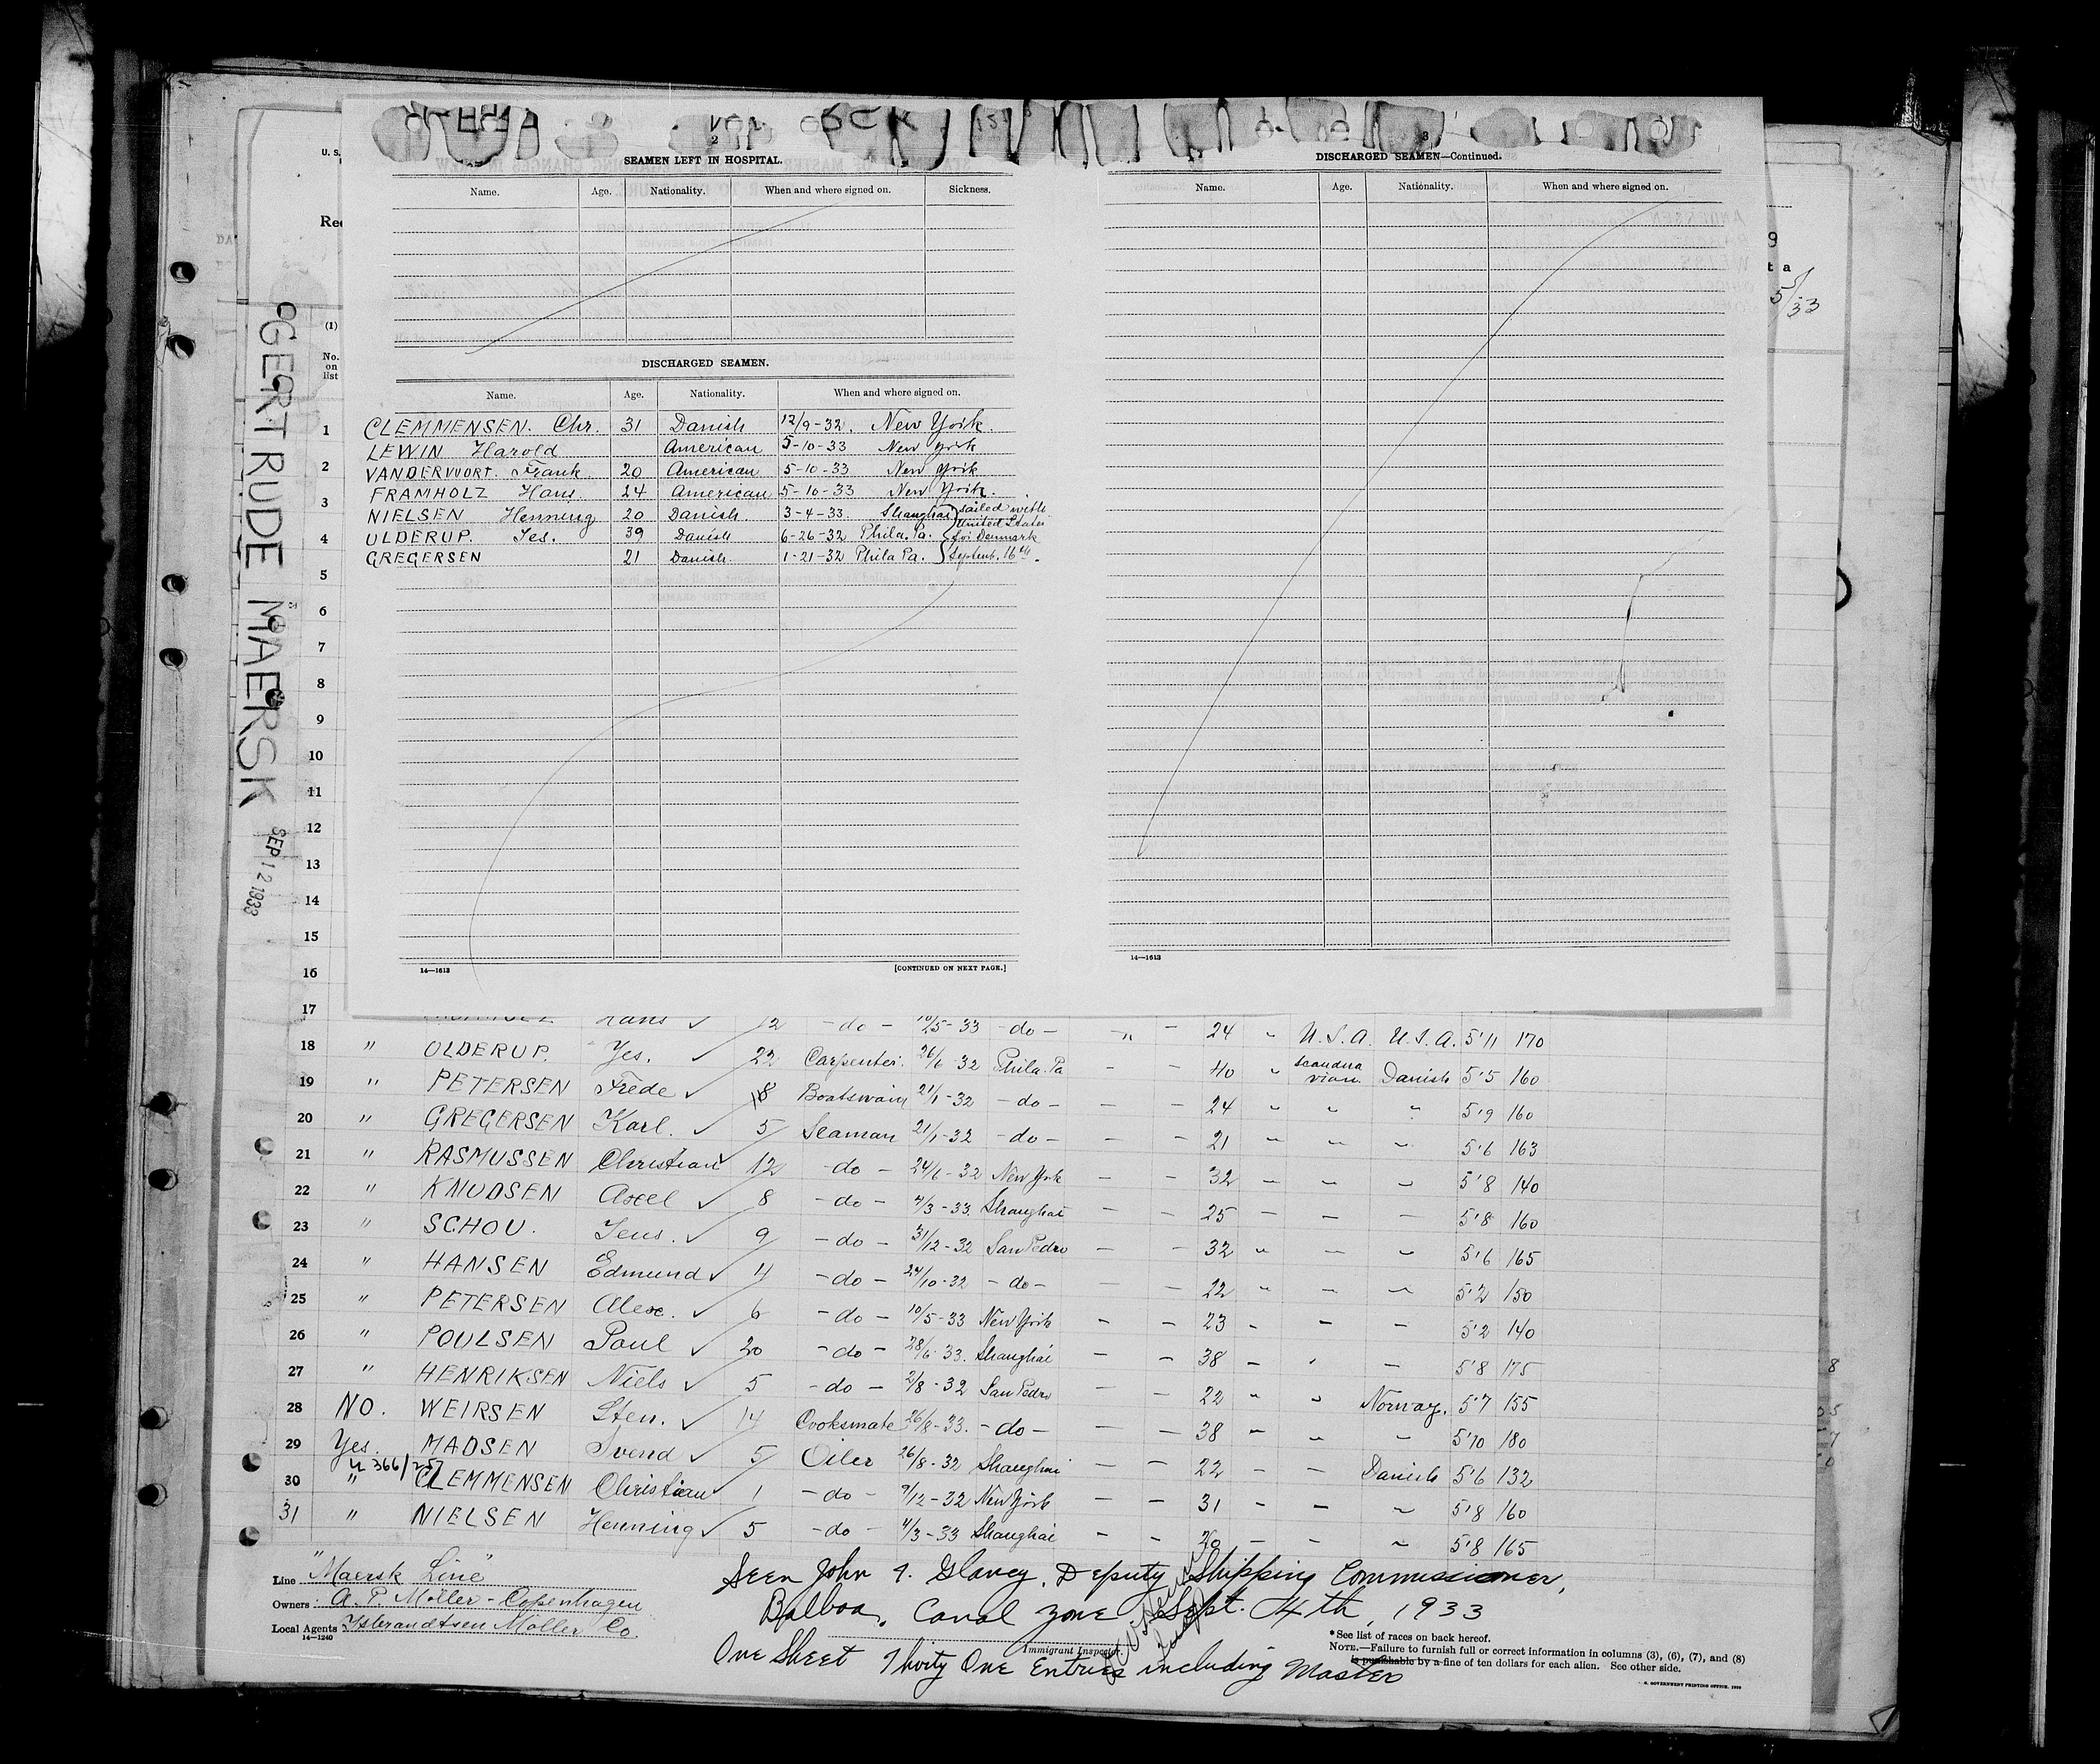 2
SEAMEN LEFT IN HOSPITAL.
Name. Age. Nationality. When and where signed on. Sickness.
DISCHARGED SEAMEN.
Name. Age. Nationality. When and where signed on.
CLEMMENSEN. Chr. 31 Danish 12/9-32. New York.
LEWIN Harold American 5-10-33 New York
VANDERVOORT. Frank 20 American 5-10-33 New York
FRAMHOLZ Hans 24 American 5-10-33 New York.
NIELSEN Henning 20 Danish. 3-4-33. Shanghai sailed with
United States
ULDERUP. Jes. 39 Danish 6-26-32 Phila. Pa. for Denmark
GREGERSEN 21 Danish. 1-21-32 Phila Pa. Septemb. 16th.
14—1613 [CONTINUED ON NEXT PAGE.]
3
DISCHARGED SEAMEN—Continued.
Name. Age. Nationality. When and where signed on.
14—1613
U. S.
Rec
(1)
No.
on
list
9
t a
5/33
GERTRUDE MAERSK
SEP 12 1933
1
2
3
4
5
6
7
8
9
10
11
12
13
14
15
16
17 Hans ✓ 12 - do - 10/5-33 - do - " - 24 " U.S.A. U.S.A. 5'11 170
18 " ULDERUP. Yes. ✓ 22 Carpenter. 26/6-32 Phila. Pa - - 40 " Scandinavian Danish 5'5 160
19 " PETERSEN Frede ✓ 18 Boatswain 21/1-32 - do - - - 24 " " " 5'9 160
20 " GREGERSEN Karl. ✓ 5 Seaman 21/1-32 - do - - - 21 " " " 5'6 163
21 " RASMUSSEN Christian ✓ 12 - do - 24/6-32 New York - - 32 " " " 5'8 140
22 " KNUDSEN Axel ✓ 8 - do - 4/3-33. Shanghai - - 25 - - - 5'8 160
23 " SCHOU. Jens. ✓ 9 - do - 31/12-32 San Pedro - - 32 " - " 5'6 165
24 " HANSEN Edmund ✓ 4 - do - 24/10-32 - do - - - 22 " - " 5'2 150
25 " PETERSEN Alex. ✓ 6 - do - 10/5-33 New York - - 23 - - - 5'2 140
26 " POULSEN Poul ✓ 20 - do - 28/6-33. Shanghai - - 38 - ' - 5'8 175
27 " HENRIKSEN Niels ✓ 5 - do - 2/8-32 San Pedro - - 22 " " Norway. 5'7 155
28 NO. WEIRSEN Sten. ✓ 14 Cooksmate 26/8-33. - do - - - 38 " " " 5'10 180
29 Yes. MADSEN Svend ✓ 5 Oiler 26/8-32 Shanghai - - 22 - - Danish 5'6 132
30 " CLEMMENSEN Christian ✓ 1 - do - 9/12-32 New York - - 31 - - " 5'8 160
31 " NIELSEN Henning ✓ 5 - do - 4/3-33 Shanghai - - 20 - - " 5'8 165
Line "Maersk Line"
Owners A. P. Möller - Copenhagen
Local Agents Isbrandtsen Möller Co.
14—1240
Seen John J. Glancy, Deputy Shipping Commissioner,
Balboa, Canal Zone Sept. 4th, 1933
Immigrant Inspector.
One Sheet Thirty One Entries including Master
*See list of races on back hereof.
NOTE.—Failure to furnish full or correct information in columns (3), (6), (7), and (8)
is punishable by a fine of ten dollars for each alien. See other side.